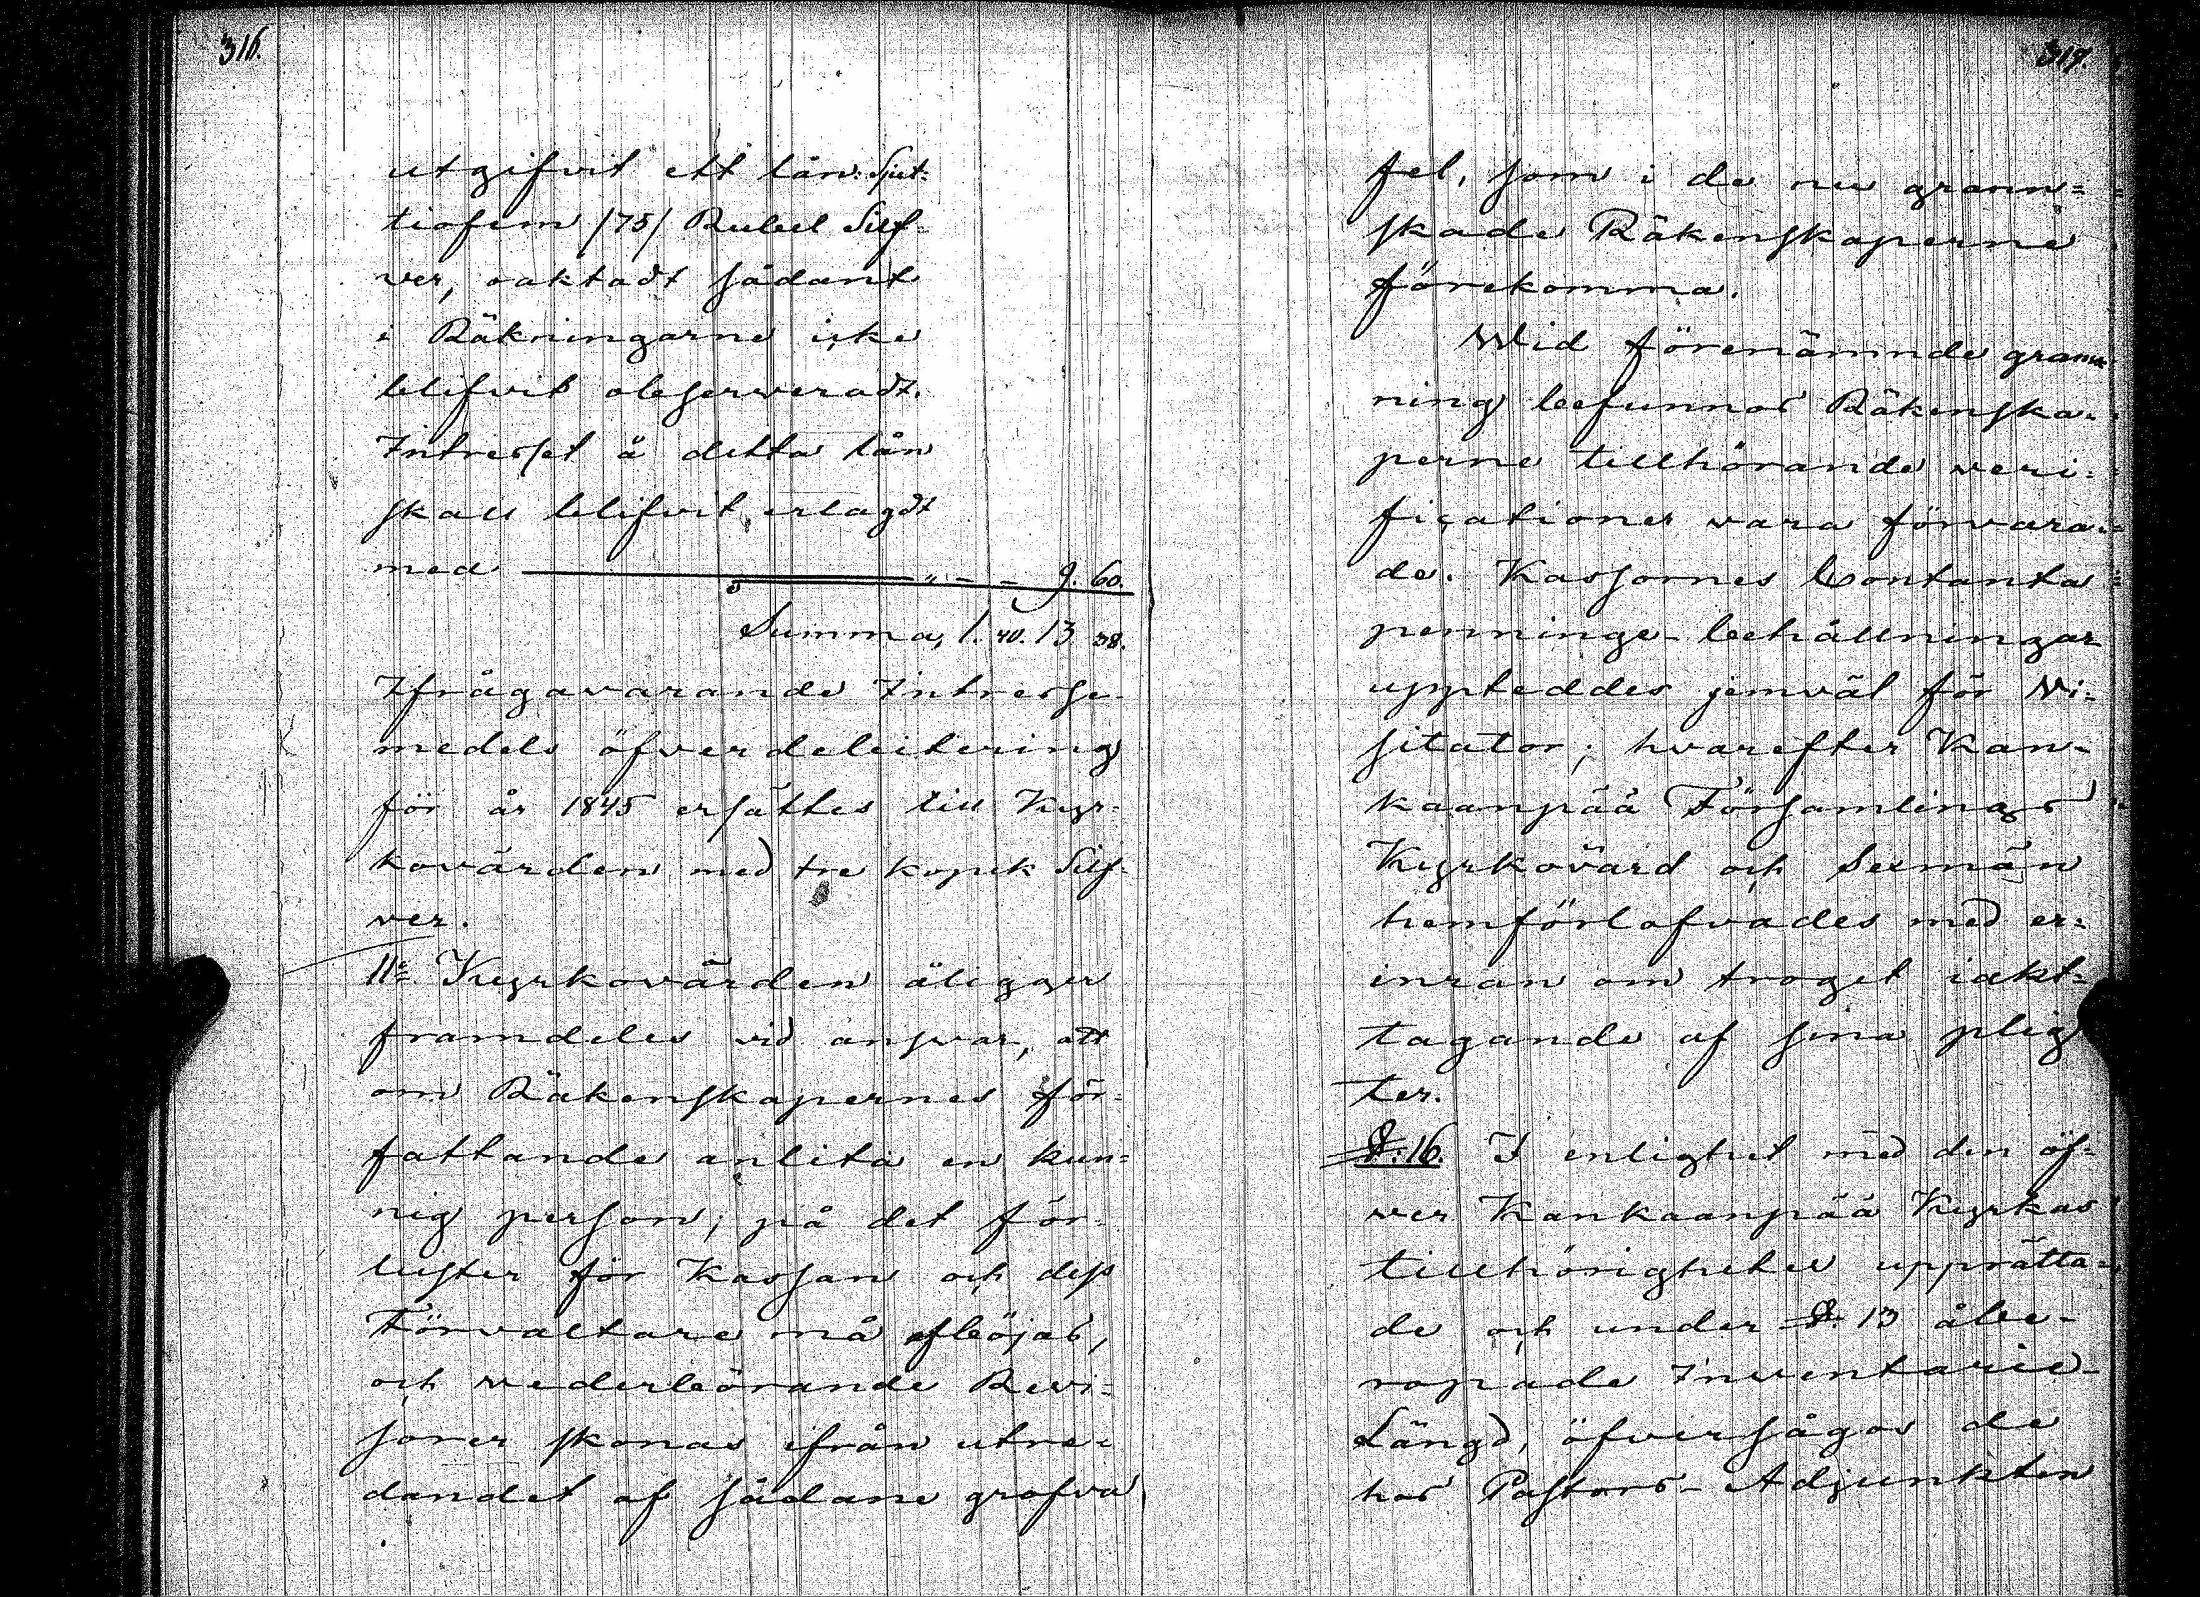 316.
utgifvit ett lån: Sjut-
tiofem /75/ Rubel Silf-
ver, oaktadt sådant
i Räkningarne icke
blifvit observeradt.
Intresset å detta lån
skall blifvit erlagdt
med — „ — – 9. 60.
Summa, 1. 40. 13 38.
Ifrågavarande Intresse-
medels öfverdebitering
för år 1845 ersättes till Kyr-
kovärden med tre kopek Silf-
ver.
11º Kyrkovärden åligger
framdeles vid answar, att
om Räkenskapernes för-
fattande anlita en kun-
nig person; på det för-
luster för Kassan och dess
Förvaltare må afböjas,
och wederbörande Revi-
sorer skonas ifrån utre-
dandet af sådane grofva
317.
fel, som i de nu grann-
skade Räkenskaperne
förekomma.
Wid förenämnde gransk-
ning befunnos Räkenska-
perne tillhörande veri-
ficationer vara förvara-
de. Kassornes Contanta
penninge-behållningar
uppteddes jemväl för Vi-
sitator; hvarefter Kan-
kaanpää Församlings
Kyrkovärd och Sexmän
hemförlofvades med er-
inran om troget iakt-
tagande af sina plig
ter.
§. 16. I enlighet med den öf-
ver Kankaanpää Kyrkas
tillhörigheter upprätta-
de och under §. 13 åbe-
ropade Inventarie-
Längd, öfversågos de
hos Pastors-Adjunkten